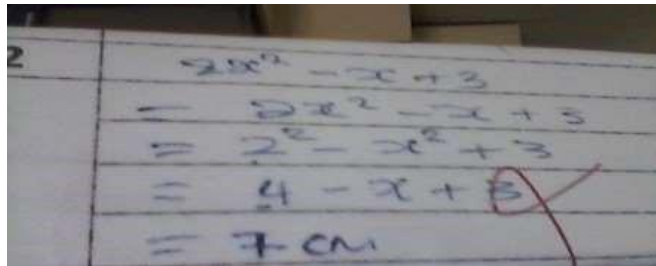 2
2x² - x + 3
= 2x² - x + 3
= 2² - x² + 3
= 4 - x + 3
= 7 cm